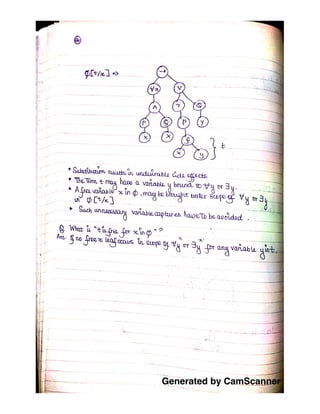 φ[t/x] ⇒
→
∀x ∨
∧ ¬ Q
P Q P y
x x f
x y } t
* Substitution results in undesirable side effects
* The term t may have a variable y bound to ∀y or ∃y.
* A free variable x in φ, may be brought under scope of ∀y or ∃y
in φ[t/x]
* Such unnecessary variable captures have to be avoided.
Q What is "t is free for x in φ"?
Ans If no free x leaf occurs in scope of ∀y or ∃y for any variable y in t.
Generated by CamScanner